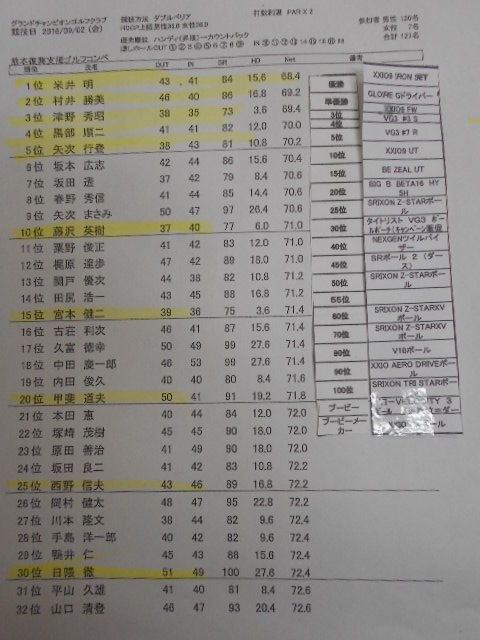 グランドチャンピオンゴルフクラブ
競技日 2016/09/02 (金)
競技方法 ダブルペリア
打数制限 PAR X 2
参加者 男性 120名
女性 7名
熊本復興支援ゴルフコンペ
順位 氏名 OUT IN GR HD Net 備考
1位 米井 明 43 41 84 15.6 68.4
2位 村井 勝美 46 40 86 16.8 69.2
3位 津野 秀昭 38 35 73 3.6 69.4
4位 黒部 順二 41 41 82 12.0 70.0
5位 矢次 行登 38 43 81 10.8 70.2
6位 坂本 広志 42 44 86 15.6 70.4
7位 坂田 透 37 42 79 8.4 70.6
8位 春野 秀信 41 44 85 14.4 70.6
9位 矢次 まさみ 50 47 97 26.4 70.6
10位 藤沢 英樹 37 40 77 6.0 71.0
11位 粟野 俊正 41 42 83 12.0 71.0
12位 梶原 達歩 47 42 89 18.0 71.0
13位 関戸 優次 44 38 82 10.8 71.2
14位 田尻 浩一 43 45 88 16.8 71.2
15位 宮本 健二 39 36 75 3.6 71.4
16位 古荘 利次 46 41 87 15.6 71.4
17位 久富 徳幸 50 49 99 27.6 71.4
18位 中田 慶一郎 46 53 99 27.6 71.4
19位 内田 俊久 40 40 80 8.4 71.6
20位 甲斐 道夫 50 41 91 19.2 71.8
21位 本田 恵 40 44 84 12.0 72.0
22位 塚崎 茂樹 45 45 90 18.0 72.0
23位 原田 善治 41 49 90 18.0 72.0
24位 坂田 良二 41 42 83 10.8 72.2
25位 西野 信夫 43 46 89 16.8 72.2
26位 岡村 健太 48 47 95 22.8 72.2
27位 川本 隆文 38 44 82 9.6 72.4
28位 手島 洋一郎 40 42 82 9.6 72.4
29位 鴨井 仁 45 43 88 15.6 72.4
30位 日隈 徹 51 49 100 27.6 72.4
31位 平山 久雄 41 40 81 8.4 72.6
32位 山口 清登 46 47 93 20.4 72.6
優勝 XXIO9 IRON SET
準優勝 GLOIRE Gドライバー
3位 XXIO9 FW
4位 VG3 # 3 S
5位 VG3 #7 R
10位 XXIO9 UT
15位 BE ZEAL UT
20位 BIG B BETA16 HY SH
25位 SRIXON Z-STARボール
30位 タイトリスト VG3 ボール
40位 NEXGENツイルバイザー
45位 SRボール 2 (ダース)
50位 SRIXON Z-STARボール
55位
60位 SRIXON Z-STARXVボール
70位 SRIXON Z-STARXVボール
80位 V10ボール
90位 XXIO AERO DRIVEボール
100位 SRIXON TRI STARボール
ブービー
ブービーメーカー